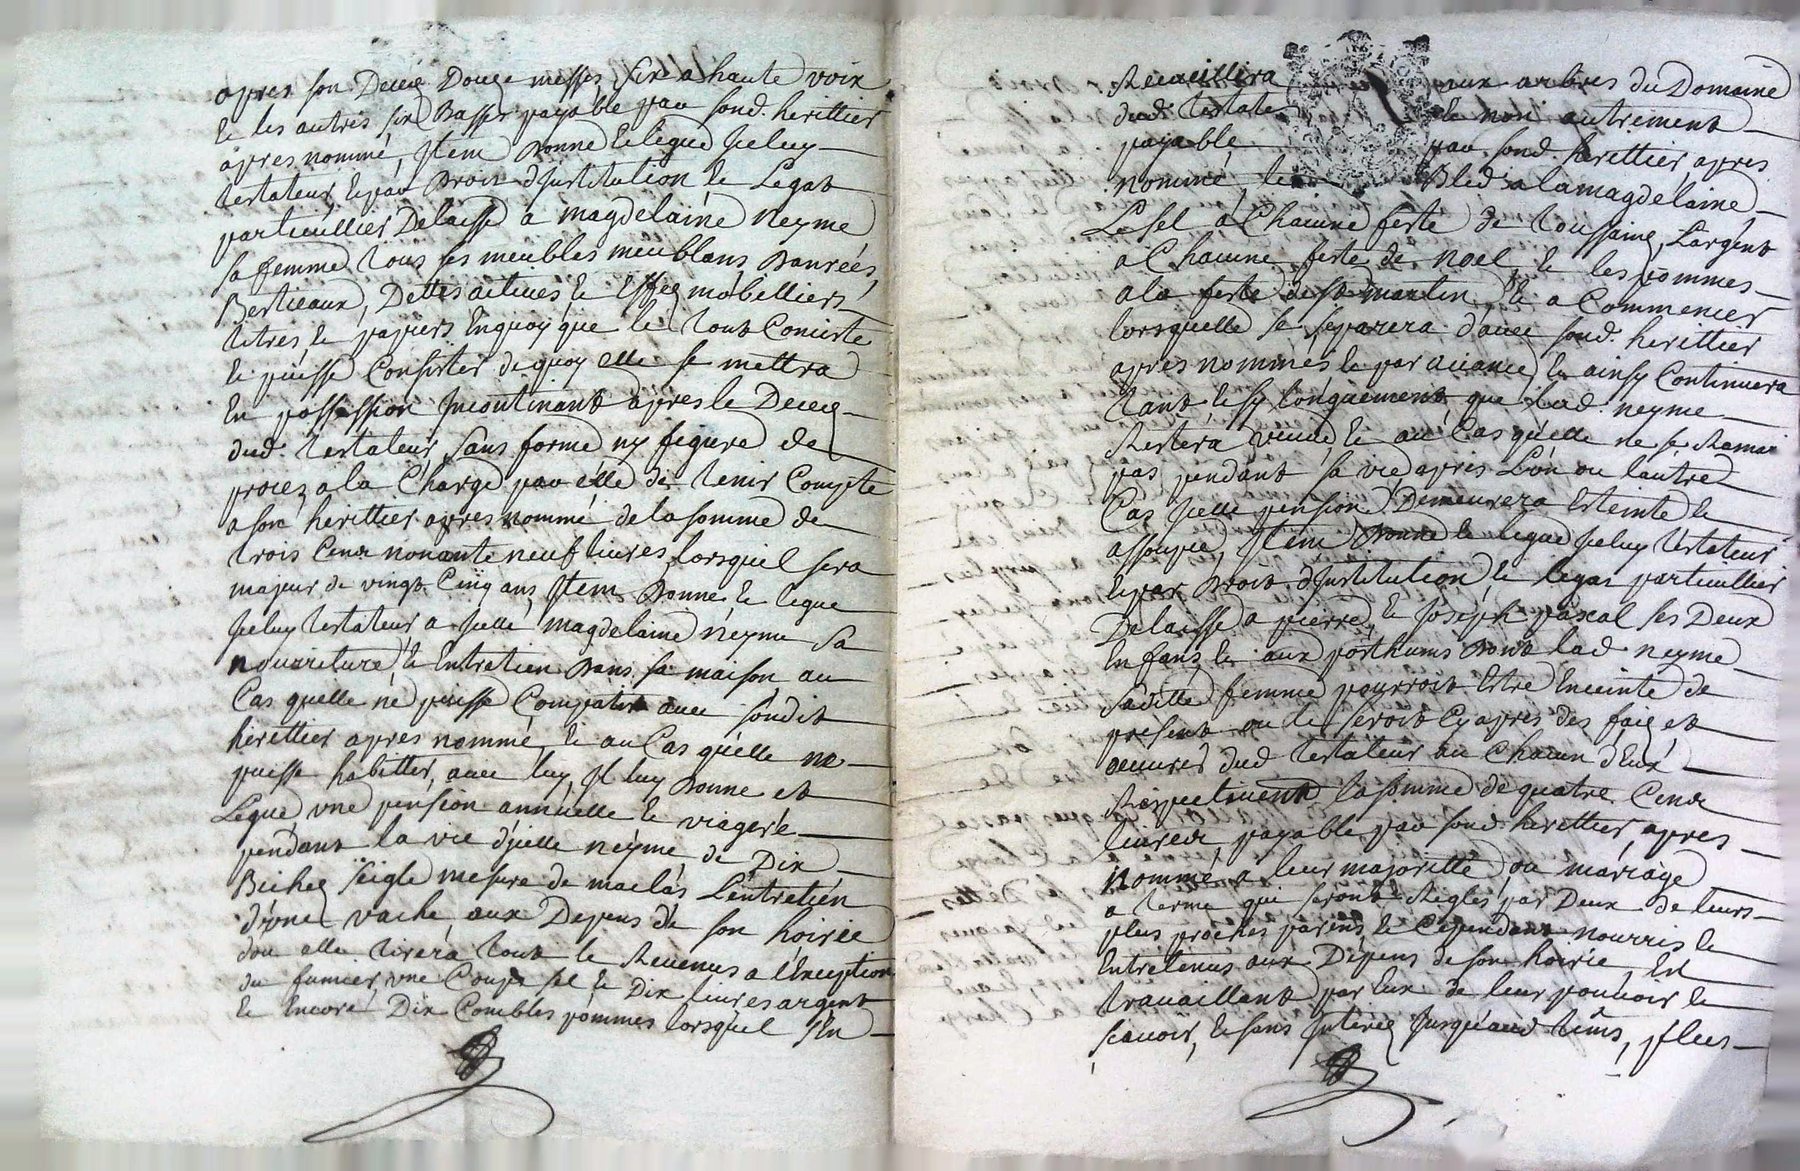 apres son Deceq Douze messes six a haute voix
& les autres six Basses payable par sond. herittier
apres nommé, Item Donne & legue Iceluy
testateur & par Droit d'Institution & Legat
particullier Delaisse a magdelaine Neyme
sa femme tous ses meubles meublans, Danrées,
Bestieaux, Dettes actives & Effeq mobelliers
titres & papiers Enquoy que le tout Conciste
& puisse Consister de quoy elle se mettra
En possession Incontinant apres le Deceq
dud. testateur sans forme ny figure de
procez a la Charge par elle de tenir Compte
a son herittier apres nommé de la somme de
trois Cent nonante neuf livres lorsquel sera
majeur de vingt Cinq ans, Item Donne & legue
Iceluy testateur a Icelle magdelaine neyme sa
nouriture & Entretien Dans sa maison au
Cas quelle ne puisse Compatir avec sondit
herittier apres nommé, & au Cas quelle ne
puisse habitter, avec luy, Il luy Donne et
Legue une pension annuelle & viagere
pendant la vie d'jcelle neyme, de Dix
Bicheq seigle mesure de maclas L'entretien
d'une vache aux Depens de son hoirie
dou elle tirera tout le Revenus a l'Exception
du fumier, une Coupe sel & Dix livres argent
& Encore Dix Combles pommes lorsquel s'en
Recueillira aux arbres du Domaine
dud. testate & non autrement
payable par sond. herittier apres
nommé, le Bled a la magdelaine
Le sel a Chacune feste de toussaint, L'argent
a Chacune feste de noel & les pommes
a la feste de st martin & a Commencer
lorsquelle se separera d'avec sond. herittier
apres nommés & par avance, & ainsy Continuera
tant & sy longuement que lad. neyme
Restera veuve, & au Cas quelle ne se Remai
pas pendant sa vie apres L'un ou lautre
Cas Icelle pension Demeurera Esteinte &
assoupie, Item Donne & legue Iceluy testateur
& par Droit d'Institution, & legat particullier
Delaisse a pierre, & Joseph pascal ses Deux
Enfans & aux posthums Dont lad neyme
sadite femme pourroit Estre Enceinte de
present ou le seroit Cy apres des faiq et
œuvres dud testateur au Chacun d'Eux
Respectivement la somme de quatre Cent
livres, payable par sond herittier, apres
Nommé a leur majoritté ou mariage
a terme qui seront Reglés par Deux de leurs
plus proches parens, & Cependant nourris &
Entretenus aux Depens de son hoirie, En
travaillant par Eux de leur pouvoir &
scavoir, & sans Intereq Jusquaud tems, plus